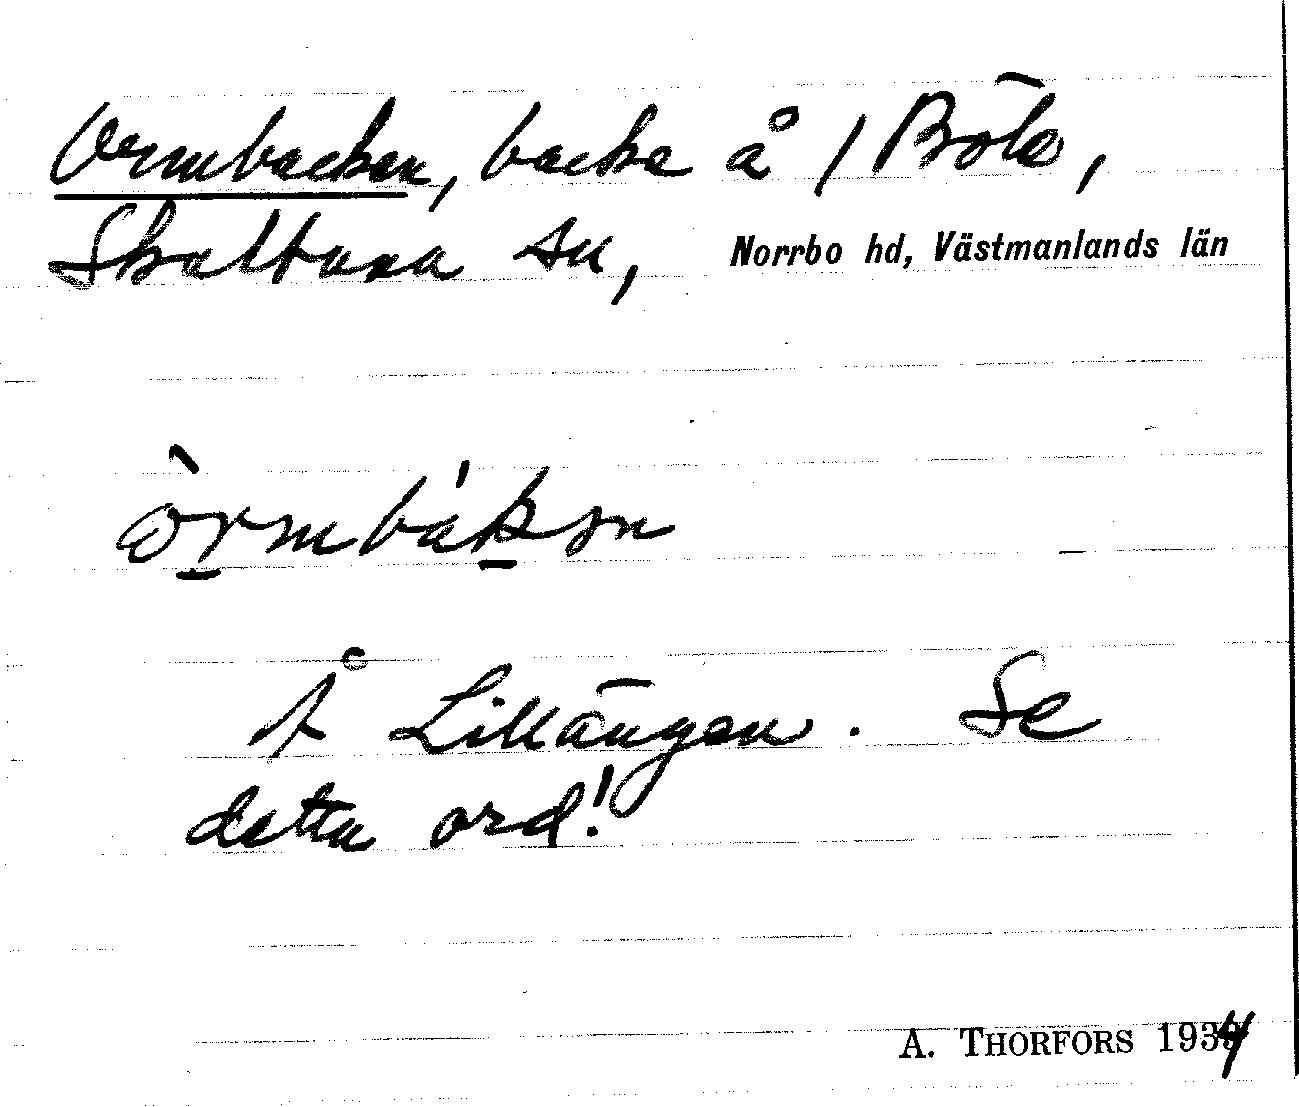 Ormbacken, backe å / Böle,
Skultuna sn, Norrbo hd, Västmanlands län
òrmbákən
Å Lillängen. Se
detta ord!
A. THORFORS 1934